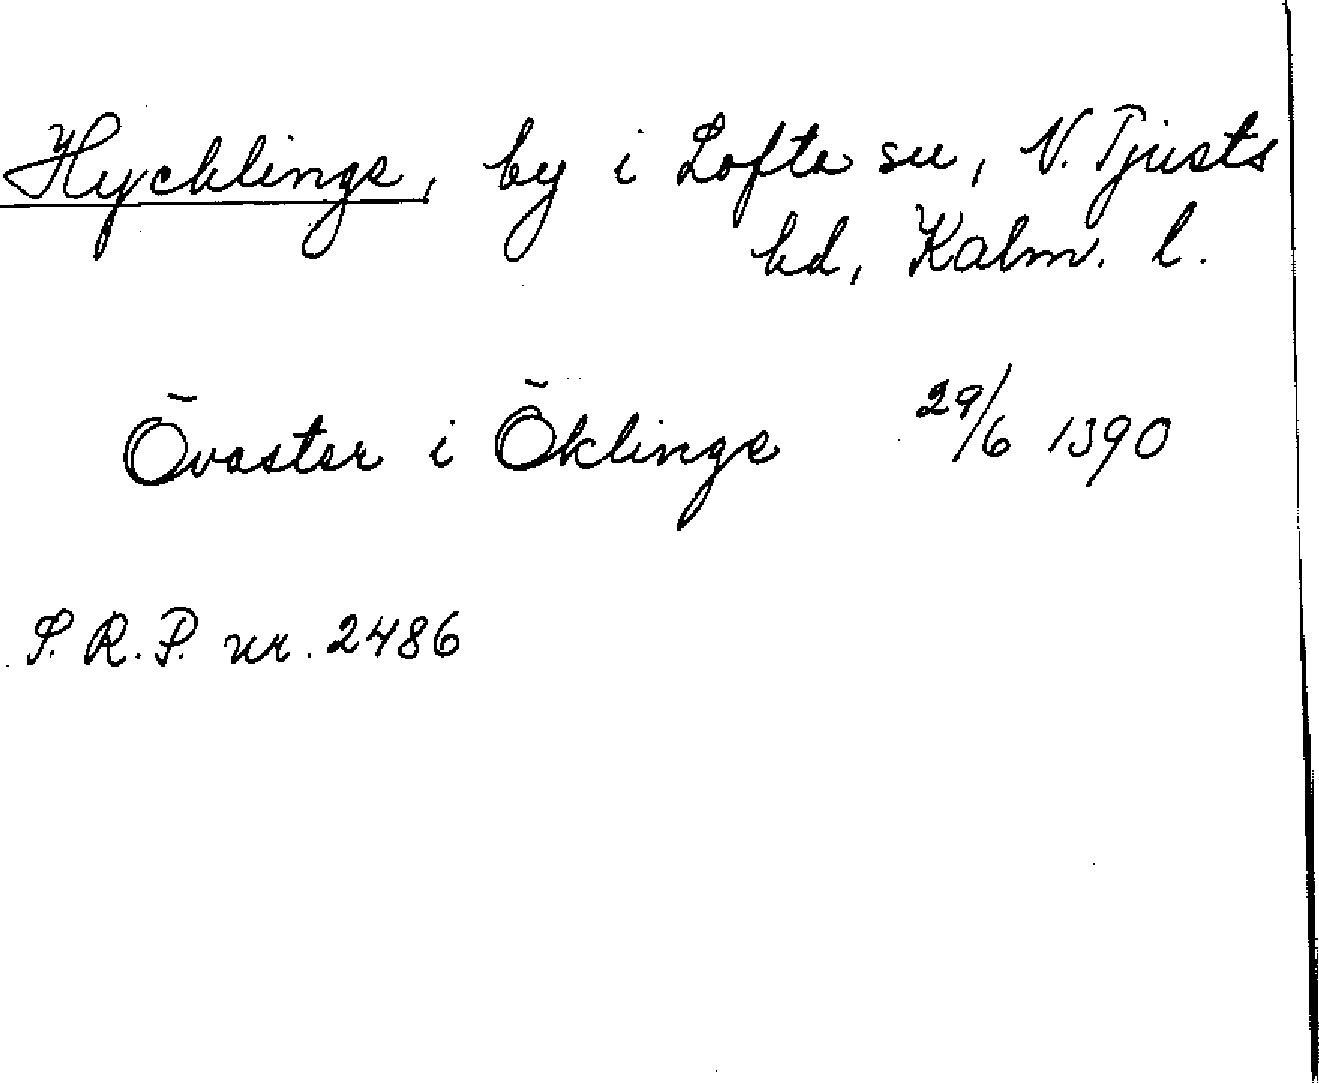 Hycklinge, by i Lofta sn, N. Tjusts
hd, Kalm. l.
Övaster i Öklinge 29/6 1390
S. R. P. nr. 2486